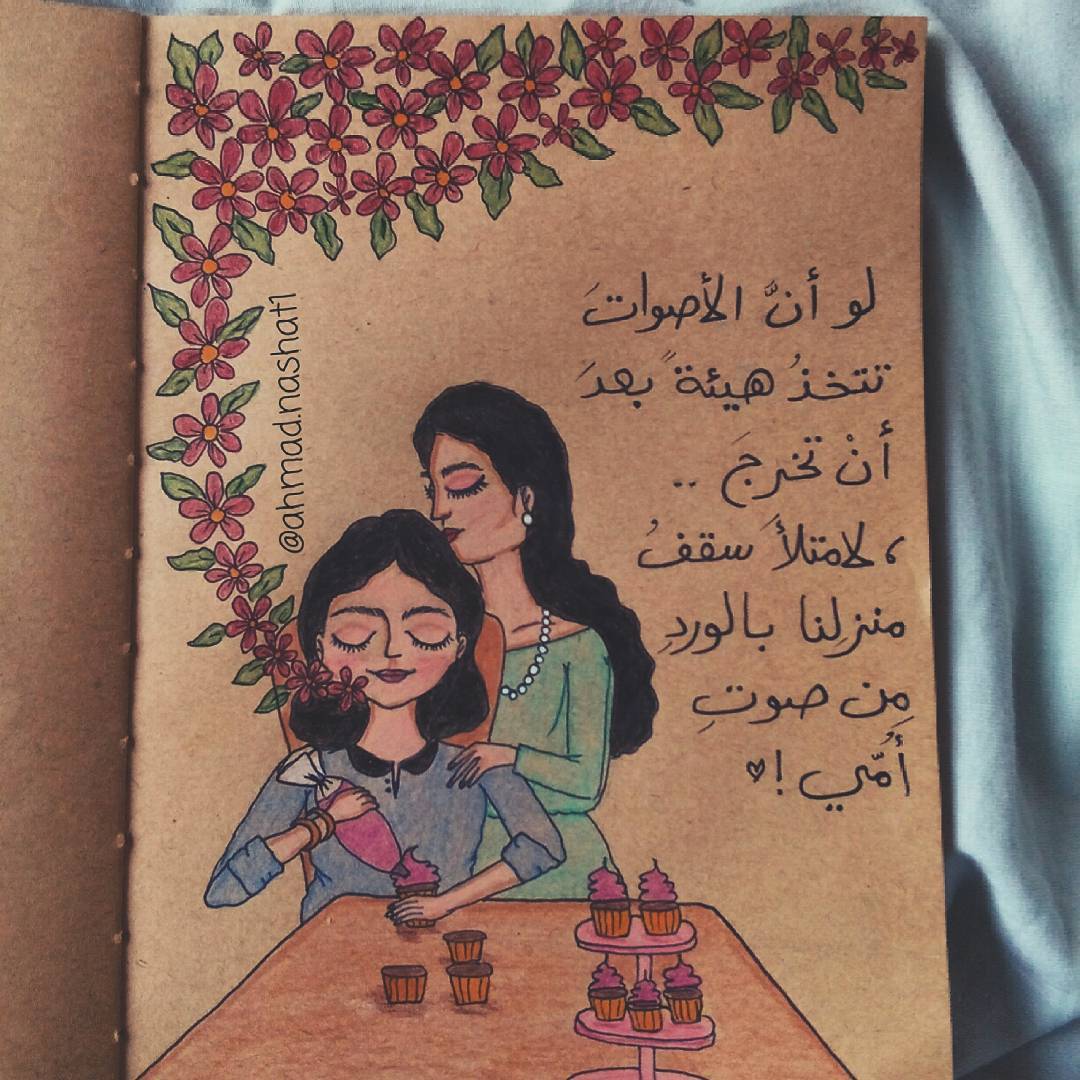 لو أنَّ الأصواتَ
تتخذُ هيئةً بعدَ
أنْ تخرجَ ..
، لامتلأَ سقفُ
منزلِنا بالوردِ
مِن صوتِ
أُمّي ! ♥
@ahmad.nashat1